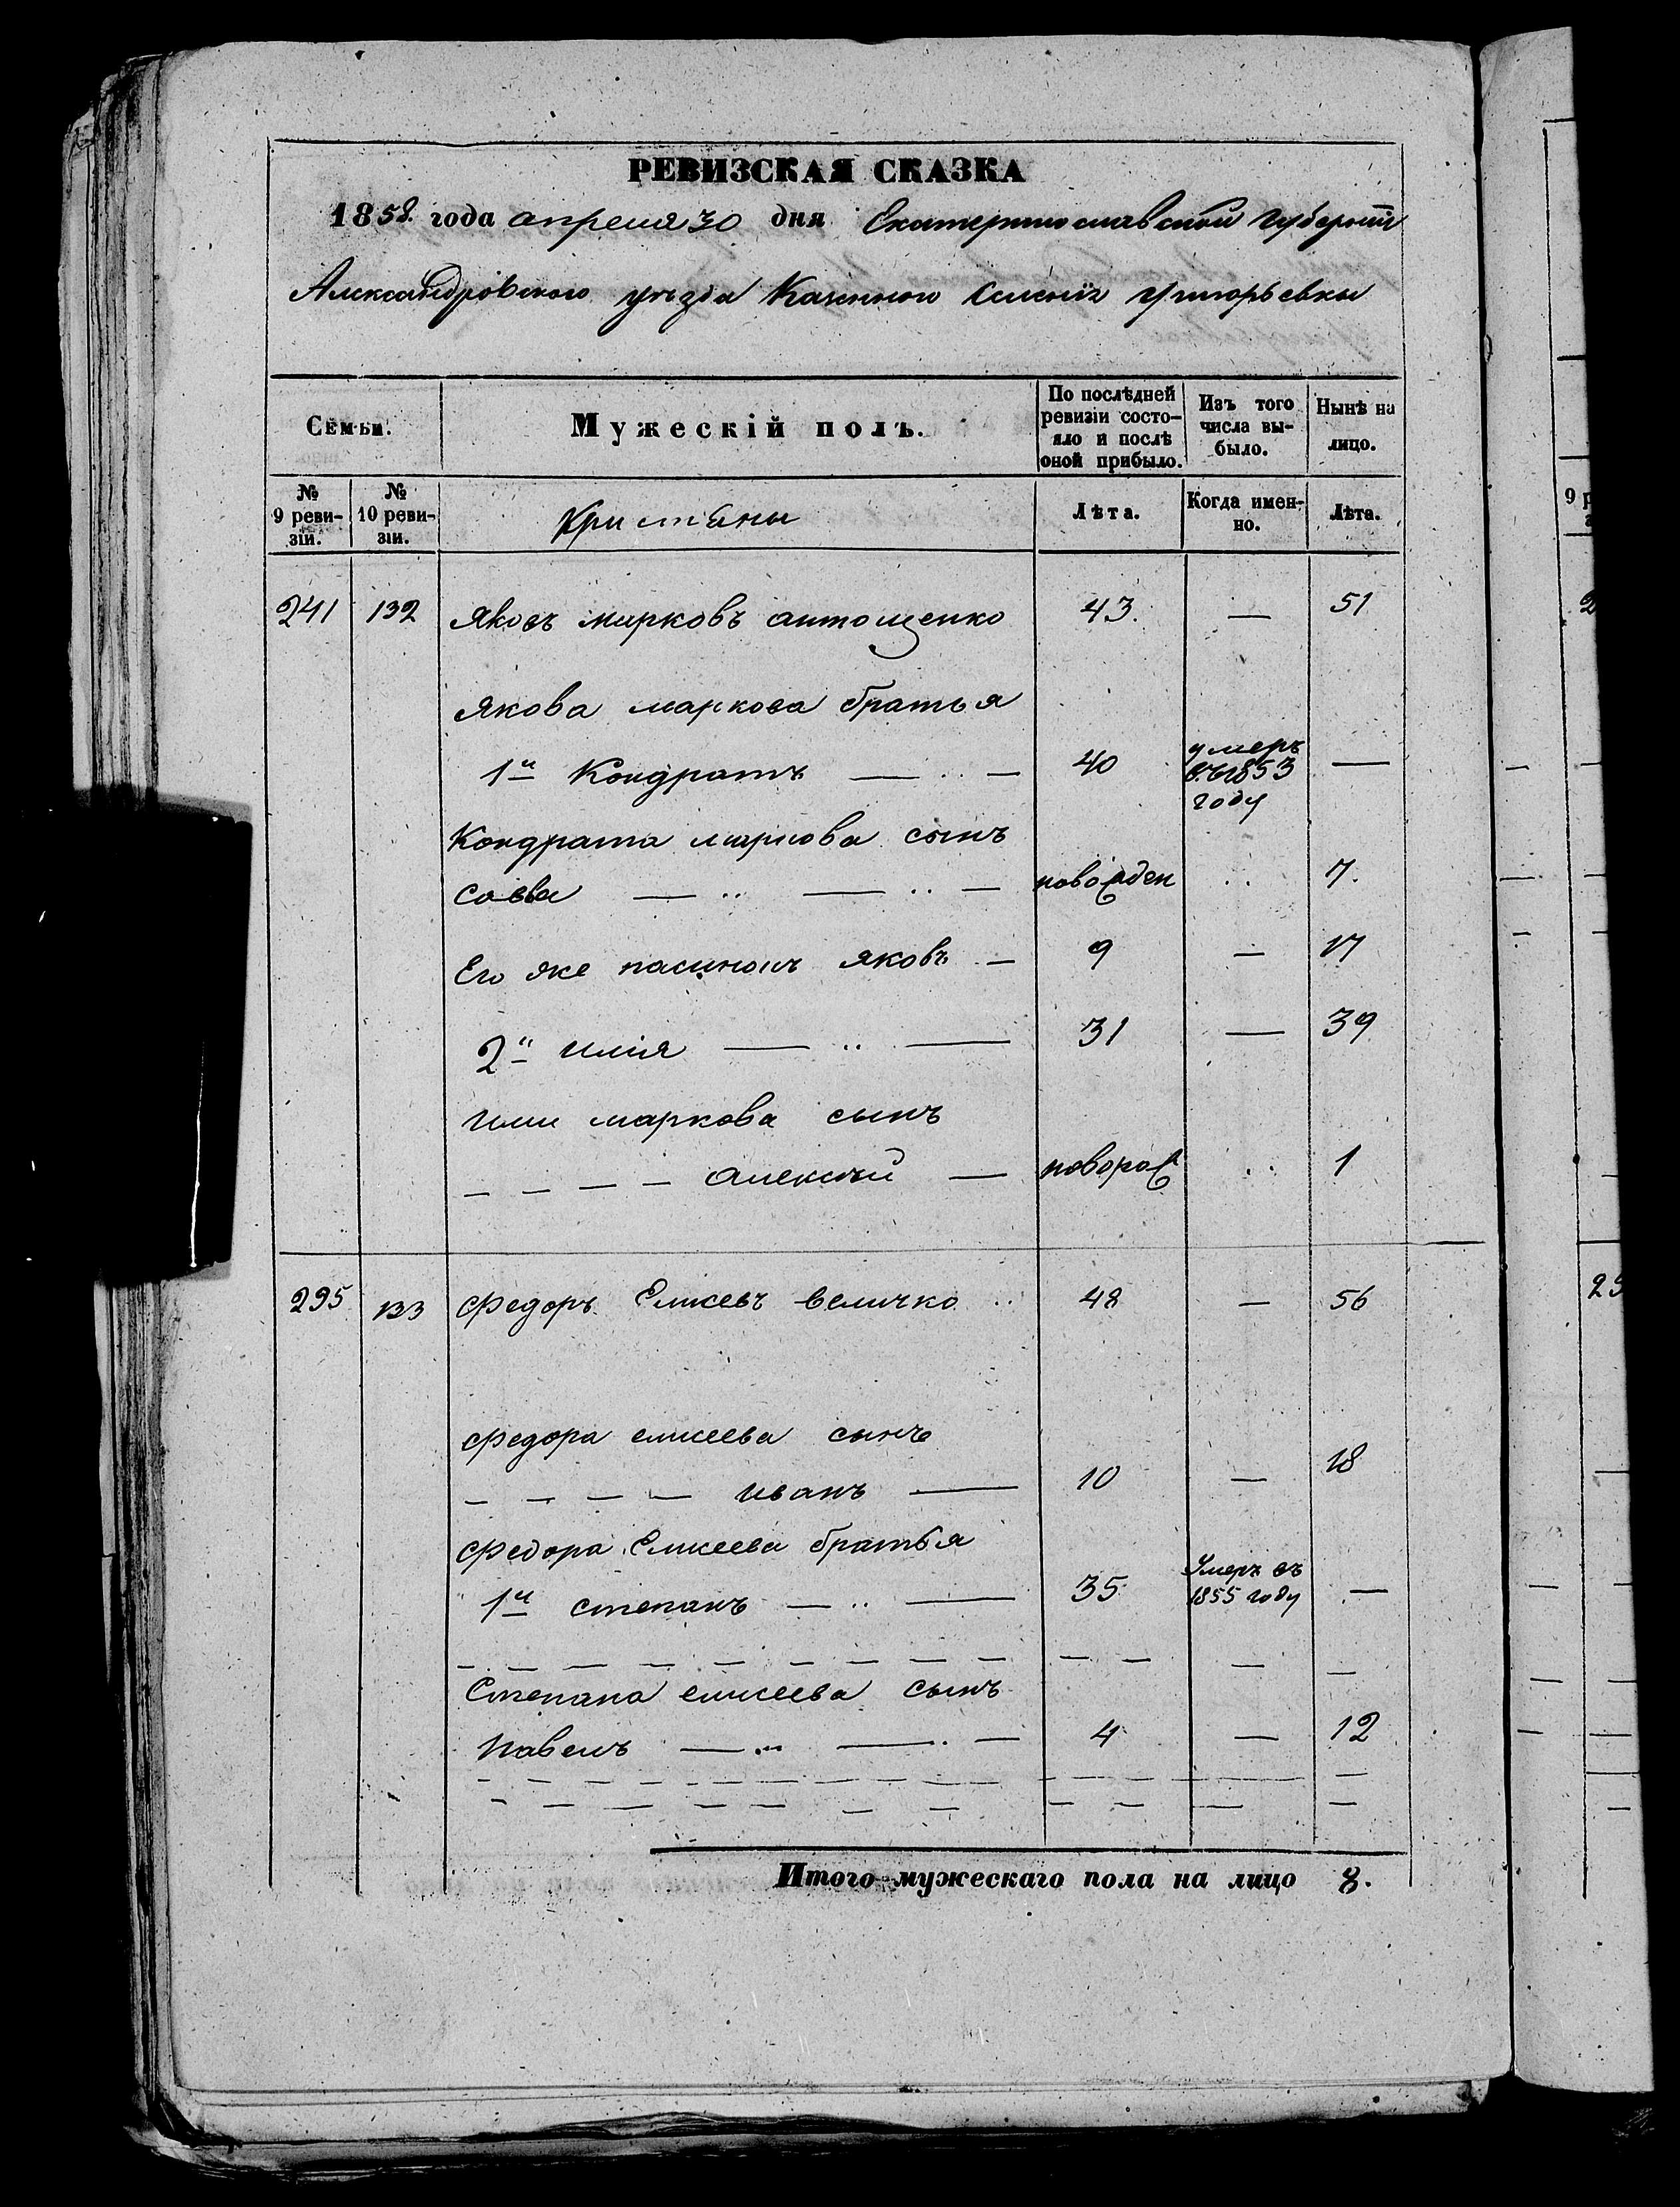 РЕВИЗСКАЯ СКАЗКА
1858 года апреля 30 дня Екатеринославской губернiи
Александровского уѣзда Казенного Селенiя Григорьевки
Семьи.
Мужескiй полъ.
По послѣдней ревизiи состо-яло и послѣ оной прибыло.
Изъ того числа вы-было.
Нынѣ на лицо.
№ 9 реви-зiи.
№ 10 реви-зiи.
Кристяны
Лѣта.
Когда имен-но.
Лѣта.
241 132 Яковъ марковъ антощенко 43. — 51
Якова маркова братья
1й Кондратъ — 40 умеръ въ 1853 году —
Кондрата маркова сынъ
савва — новорожден 7.
Его же пасинокъ яковъ — 9 — 17
2й илiя — 31 — 39
илии маркова сынъ
алексѣй — новорож 1
295 133 Федоръ Елисеевъ величко 48 — 56
Федора елисеева сынъ
иванъ — 10 — 18
Федора Елисеева братья
1й степанъ — 35 Умеръ въ 1855 году —
Степана елисеева сынъ
павелъ — 4 — 12
Итого мужескаго пола на лицо 8.
9 р
2
29